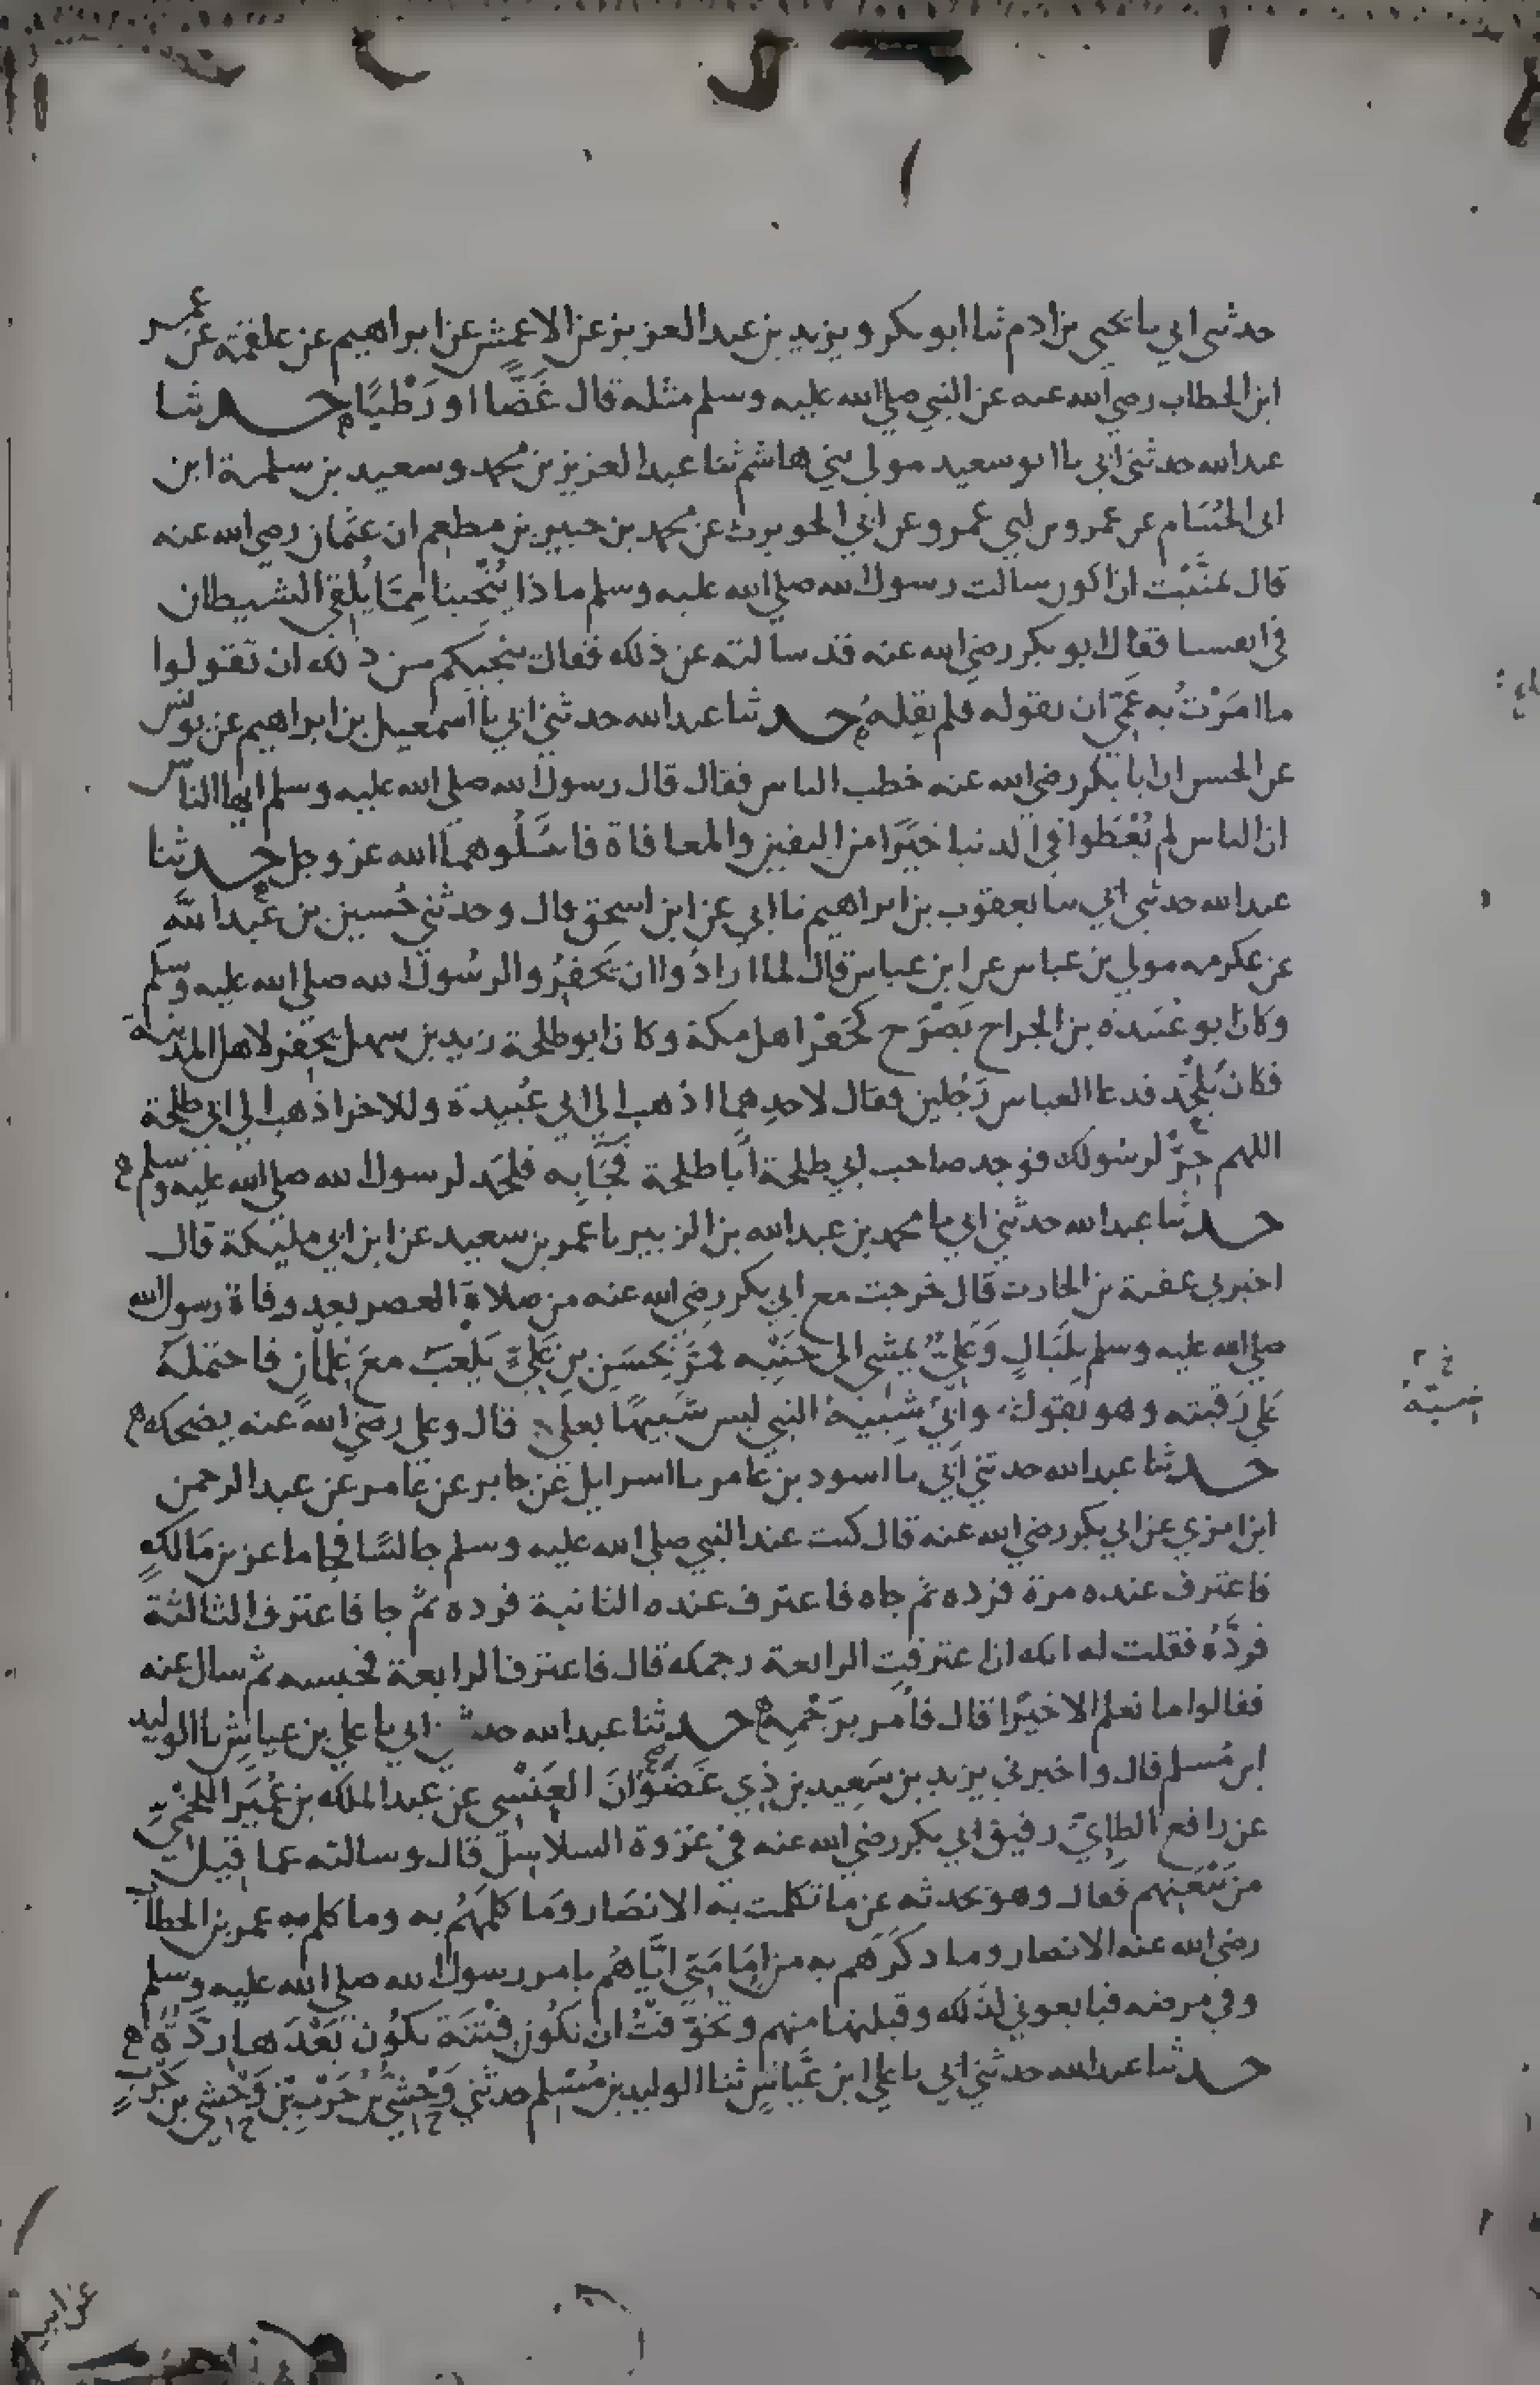 حدثنى ابي نا يحيى بن ادم ثنا ابو بكر ويزيد بن عبد العزيز عن الاعمش عن ابراهيم عن علقمة عن عمر
ابن الخطاب رضي الله عنه عن النبي صلى الله عليه وسلم مثله قال غَضًّا او رَطْبًا حدثنا
عبد الله حدثني ابي نا ابو سعيد مولى بني هاشم ثنا عبد العزيز بن محمد وسعيد بن سلمة ابن
ابى الحُسَام عن عمرو بن ابي عمرو عن ابي الحويرث عن محمد بن جبير بن مطعم ان عثمان رضي الله عنه
قال تمنَّيْت ان اكون سالت رسول الله صلى الله عليه وسلم ماذا يُنْجينا مِمَّا يُلقي الشيطان
في انفسنا فقال ابو بكر رضي الله عنه قد سالته عن ذلك فقال ينجيكم من ذلك ان تقولوا
ما امَرْتُ به عَمِّي ان يقوله فلم يقله حدثنا عبد الله حدثني ابي نا اسمعيل بن ابراهيم عن يونس
عن الحسن ان ابا بكر رضي الله عنه خطب الناس فقال قال رسول الله صلى الله عليه وسلم ايها الناس
ان الناس لم يُعْطَوا في الدنيا خيرًا من اليقين والمعافاة فاسَلُوهما الله عز وجل حدثنا
عبد الله حدثنى ابي نا يعقوب بن ابراهيم نا ابي عن ابن اسحق قال وحدثني حُسين بن عبد الله
عن عكرمه مولى بن عباس عن ابن عباس قال لما ارادُوا ان يَحْفِرُوا لرسُول الله صلى الله عليه وسلم
وكان ابو عُبَيدة بن الجراح يَضْرَح كحَفْر اهل مكة وكان ابو طلحة زيد بن سهل يحفر لاهل المدينة
فكان يُلْحِد فدعا العباس رَجُلين فقال لاحدِهما اذهب الى ابي عُبيدة وللاخر اذهب الى ابي طلحة
اللهم خِرْ لرسُولك فوجد صاحب ابي طلحة ابا طلحة فجَا به فلحَد لرسول الله صلى الله عليه وسلم
حدثنا عبد الله حدثني ابي نا محمد بن عبد الله بن الزبير نا عمر بن سعيد عن ابن ابي مليكة قال
اخبرنى عقبة بن الحارث قال خرجت مع ابي بكر رضي الله عنه من صلاة العصر بعد وفاة رسول الله
صلى الله عليه وسلم بلَيَالٍ وَعَلِيٌّ يمشي الى جَنْبِه فمَرَّ بحَسَن بن عَلِيٍّ يَلْعَبُ معَ غِلمانٍ فاحتمله
عَلى رَقبته وهو يقول وا بي شبيه النبي ليس شَبيهًا بعلي قال وعلى رضي الله عنه يضحك
حدثنا عبد الله حدثني ابي نا اسود بن عامر نا اسرايل عن جابر عن عامر عن عبد الرحمن
ابن ابزي عن ابي بكر رضي الله عنه قال كنت عند النبي صلى الله عليه وسلم جالسًا فجا ماعز بن مَالكٍ
فاعترف عنده مرة فرده ثم جاه فاعترف عنده الثانية فرده ثم جا فاعترف الثالثة
فردَّهُ فقلت له انك ان اعترفت الرابعة رجمك قال فاعترف الرابعة فحبسه ثم سال عنه
فقالوا ما نعلم الا خيرًا قال فامر برَجْمِه حدثنا عبد الله حدثني ابي نا علي بن عياش نا الوليد
ابن مُسلم قال واخبرني يزيد بن سَعِيد بن ذِي عَصَوَانَ العَنْسِي عن عبد الملك بن عُمَيرَ اللخْمِيّ
عن رافع الطايّ رفيق ابي بكر رضي الله عنه في غزوة السلاسِل قال وسالته عما قيل
من بَيْعَتِهم فقال وهو يحدثه عن ما تكلمت به الانصَار ومَا كلمَهُم به وما كلم به عمر بن الخطاب
رضي الله عنه الانصار وما ذكَرَهم به من اِمَامَتِي ايَّاهُم بامر رسول الله صلى الله عليه وسلم
وفي مرضه فبايعوني لذلك وقبلتها منهم وتخوَّفْتُ ان تكُون فِتْنَة يكُون بَعْدَها رِدَّةٌ
حدثنا عبد الله حدثني ابي نا علي ابن عَيَّاش ثنا الوليد بن مُسْلِم حدثني وَحْشيُّ بنُ حَرْب بنِ وَحْشي بن حَرْبٍ